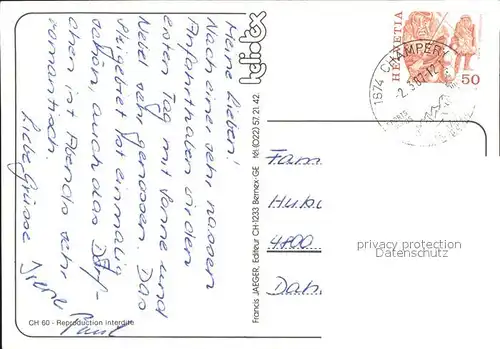 Meine Lieben!
Nach einer sehr nassen
Anfahrt haben wir den
ersten Tag mit Sonne und
Nebel sehr genossen. Das
Skigebiet ist einmalig
schön, auch das Dörf-
chen ist Abends sehr
romantisch.
Liebe Grüsse
Paul
CH 60 - Reproduction interdite
Francis JAEGER, Editeur CH-1233 Bernex-GE Tél. (022) 57.21.42
heliotex
HELVETIA
50
1874 CHAMPERY
Fam
Hub
4800
Dan
privacy protection
AnsichtskartenVersand.com